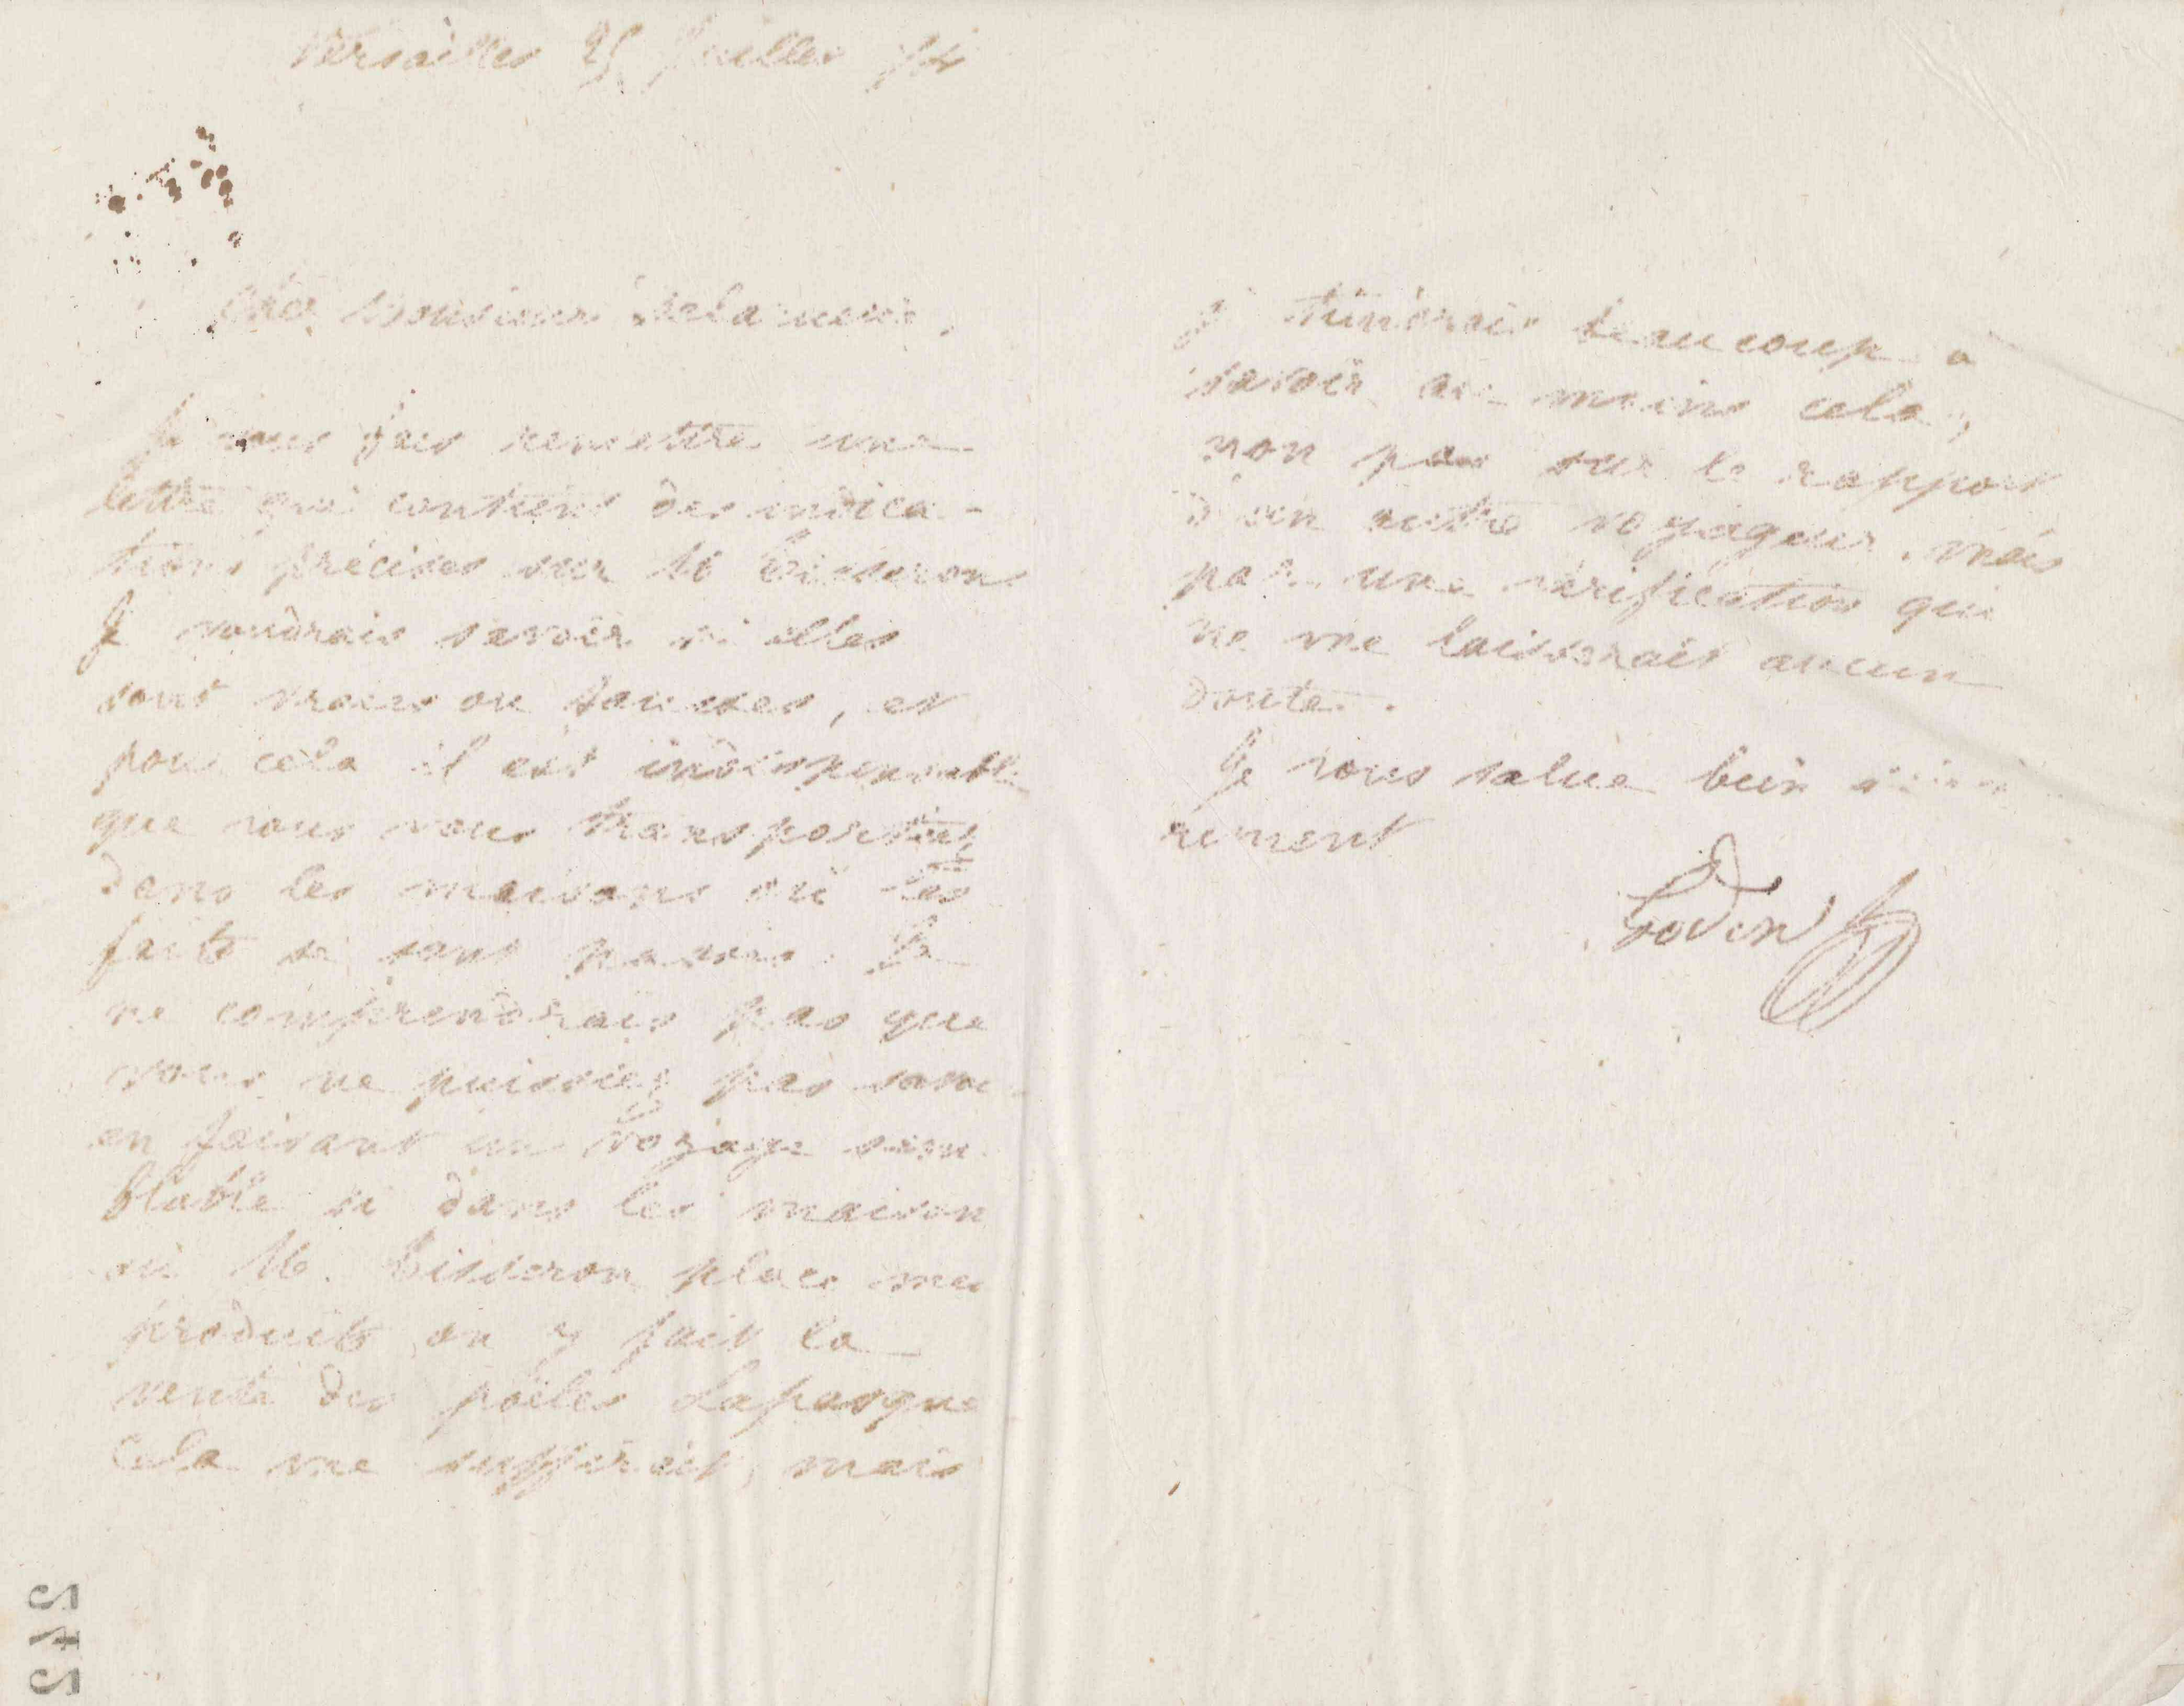 Versailles 25 Juillet 74
Cher Monsieur
Je vous fais remettre une
lettre qui contient des indica-
tions précises sur M Tisseron
Je voudrais savoir si elles
sont vraies ou fausses, et
pour cela il est indispensable
que vous vous transportiez
dans les maisons où les
faits se sont passés. Je
ne comprendrais pas que
vous ne puissiez pas savoir
en faisant un voyage sem-
blable si dans les maison
où M. Tisseron place mes
produits on y fait la
vente des poêles
Cela me suffirait, mais
je tiendrais beaucoup à
savoir au moins cela,
non pas sur le rapport
d'un autre voyageur, mais
par une vérification qui
ne me laisserait aucun
doute.
Je vous salue bien
rement
Godin
242